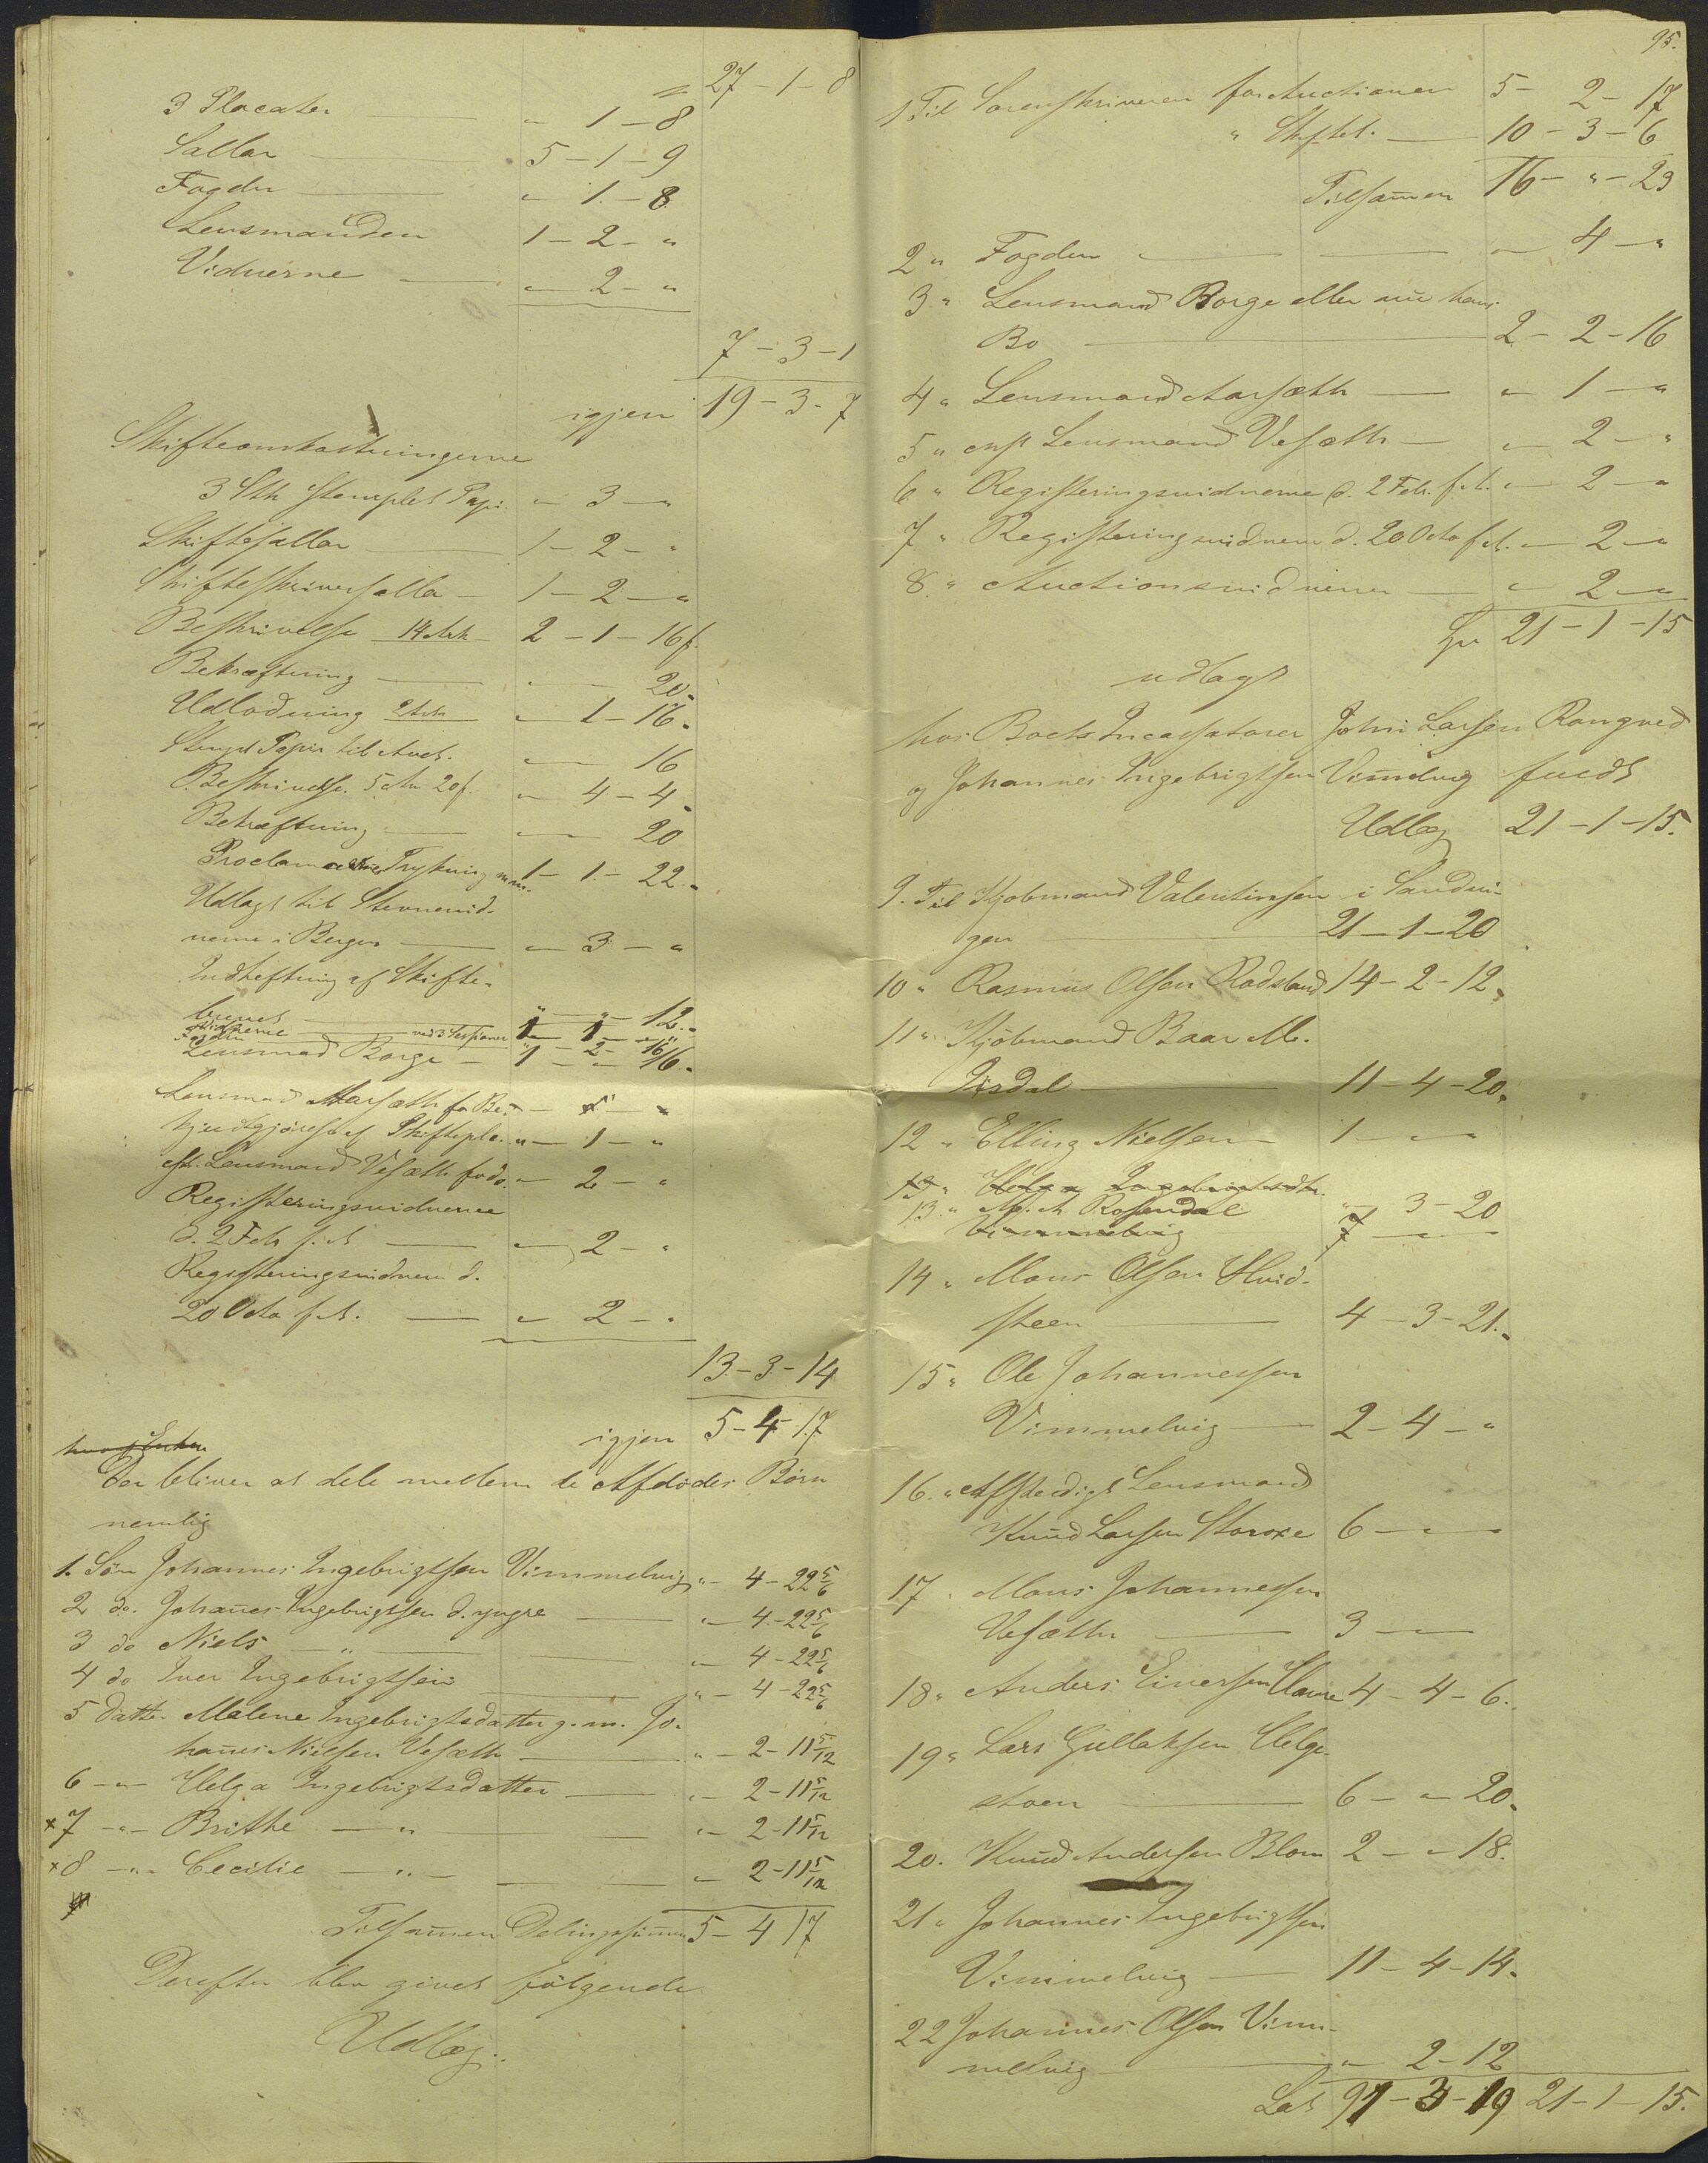 27 - 1 - 8
3 Placater — " 1 - 8
Sallar — 5 - 1 - 9
Fogden — " 1 - 8
Lensmanden 1 - 2 - "
Vidnerne — " 2 - "
7 - 3 - 1
igjen 19 - 3 - 7
Skifteomkostningerne
3 Stk stemplet Papir " 3 - "
Skiftesallar 1 - 2 - "
Skifteskriversalla — 1 - 2 - "
Beskrivelse 14 Ark 2 - 1 - 16 f.
Bekræftning — " — 20.
Udlodning 2 Ark " 1 - 16.
Stempl Papir til Auct. " — 16
Beskrivelse. 5 Ark 20 f. " 4 - 4.
Bekræftning — " — 20
Proclama Trykning m.m. 1 - 1 - 22.
Udlagt til Stevnevid-
nerne i Bergen — " 3 - "
Indheftning af Skifte-
brevet — " - " - 12.
Vidnerne — ved 3 Sessioner 1 - 1 - "
Fogden " - 2 - 16
Lensmad Borge — 1 - " - 16.
Lensmad Aarsæth for Be-
kjendtgjörelse af Skiftepla. " - 1 - "
cst. Lensmand Vesæth for do. " - 2 - "
Registeringsvidnerne
d. 2 Feb. f. A — " 2 - "
Registeringsvidnerne d.
20 Octo f. A. — " 2 - "
13 - 3 - 14
igjen 5 - 4 - 17
Der bliver at dele mellem de Afdödes Börn
nemlig
1. Sön Johannes Ingebrigtsen Vimmelvig " - 4 - 22 5/6
2 do. Johañes Ingebrigtsen d. yngre — " - 4 - 22 5/6
3 do Niels — " — " - 4 - 22 5/6
4 do Iver Ingebrigtsen — " - 4 - 22 5/6
5 Datter Malene Ingebrigtsdatter g. m. Jo-
hañes Nielsen Vesæth — " - 2 - 11 5/12
6 - " - Helga Ingebrigtsdatter — " - 2 - 11 5/12
x 7 - " - Brithe — " — " - 2 - 11 5/12
x 8 - " - Cecilie — " — " - 2 - 11 5/12
Tilsam̃en Delingssum̃en 5 - 4 17
Derefter blev givet fölgende
Udlæg:
95.
1 Til Sorenskriveren for Auctionen 5 - 2 - 17
" Skiftet. — 10 - 3 - 6
Tilsam̃en 16 - " - 23
2 " Fogden — " 4 - "
3 " Lensmand Borge eller nu hans
Bo — 2 - 2 - 16
4 " Lensmand Aarsæth — " 1 - "
5 " cst Lensmand Vesæth — " 2 - "
6 " Registeringsvidnerne d. 2 Feb. f. A. " 2 - "
7 " Registeringsvidnern d. 20 Octo f. A. " 2 - "
8. " Auctionsvidnerne — " 2 - "
Er 21 - 1 - 15
udlagt
hos Boets Incassatorer John Larsen Rongved
og Johannes Ingebrigtsen Vim̃elvig fuldt
Udlæg 21 - 1 - 15.
9. Til Kjobmand Valentinsen i Sandvi-
gen — 21 - 1 - 20
10 " Rasmus Olsen Rodsland 14 - 2 - 12.
11 " Kjöbmand Baar M.
Isdal — 11 - 4 - 20.
12 " Elling Nielsen 1 - " - "
13 " Helga Ingebrigtsdtr.
13. " A. Rosendal " - 3 - 20
Vimmelvig 7 - " -
14 " Mons Olsen Hvid-
steen — 4 - 3 - 21.
15 " Ole Johannessen
Vimmelvig — 2 - 4 - "
16. " Afskediget Lensmand
Knud Larsen Storoxe 6 - " -
17 " Mons Johannessen
Vesæth — 3 - " -
18 " Anders Einersen Hanne 4 - 4 - 6.
19 " Lars Gullaksen Helge-
stoen — 6 - " - 20.
20. Knud Andersen Blom 2 - " - 18.
21 " Johannes Ingebrigtsen
Vimmelvig — 11 - 4 - 14.
22 Johannes Olsen Vim-
melvig — " - 2 - 12
Lat 91 - 3 - 19 21 - 1 - 15.